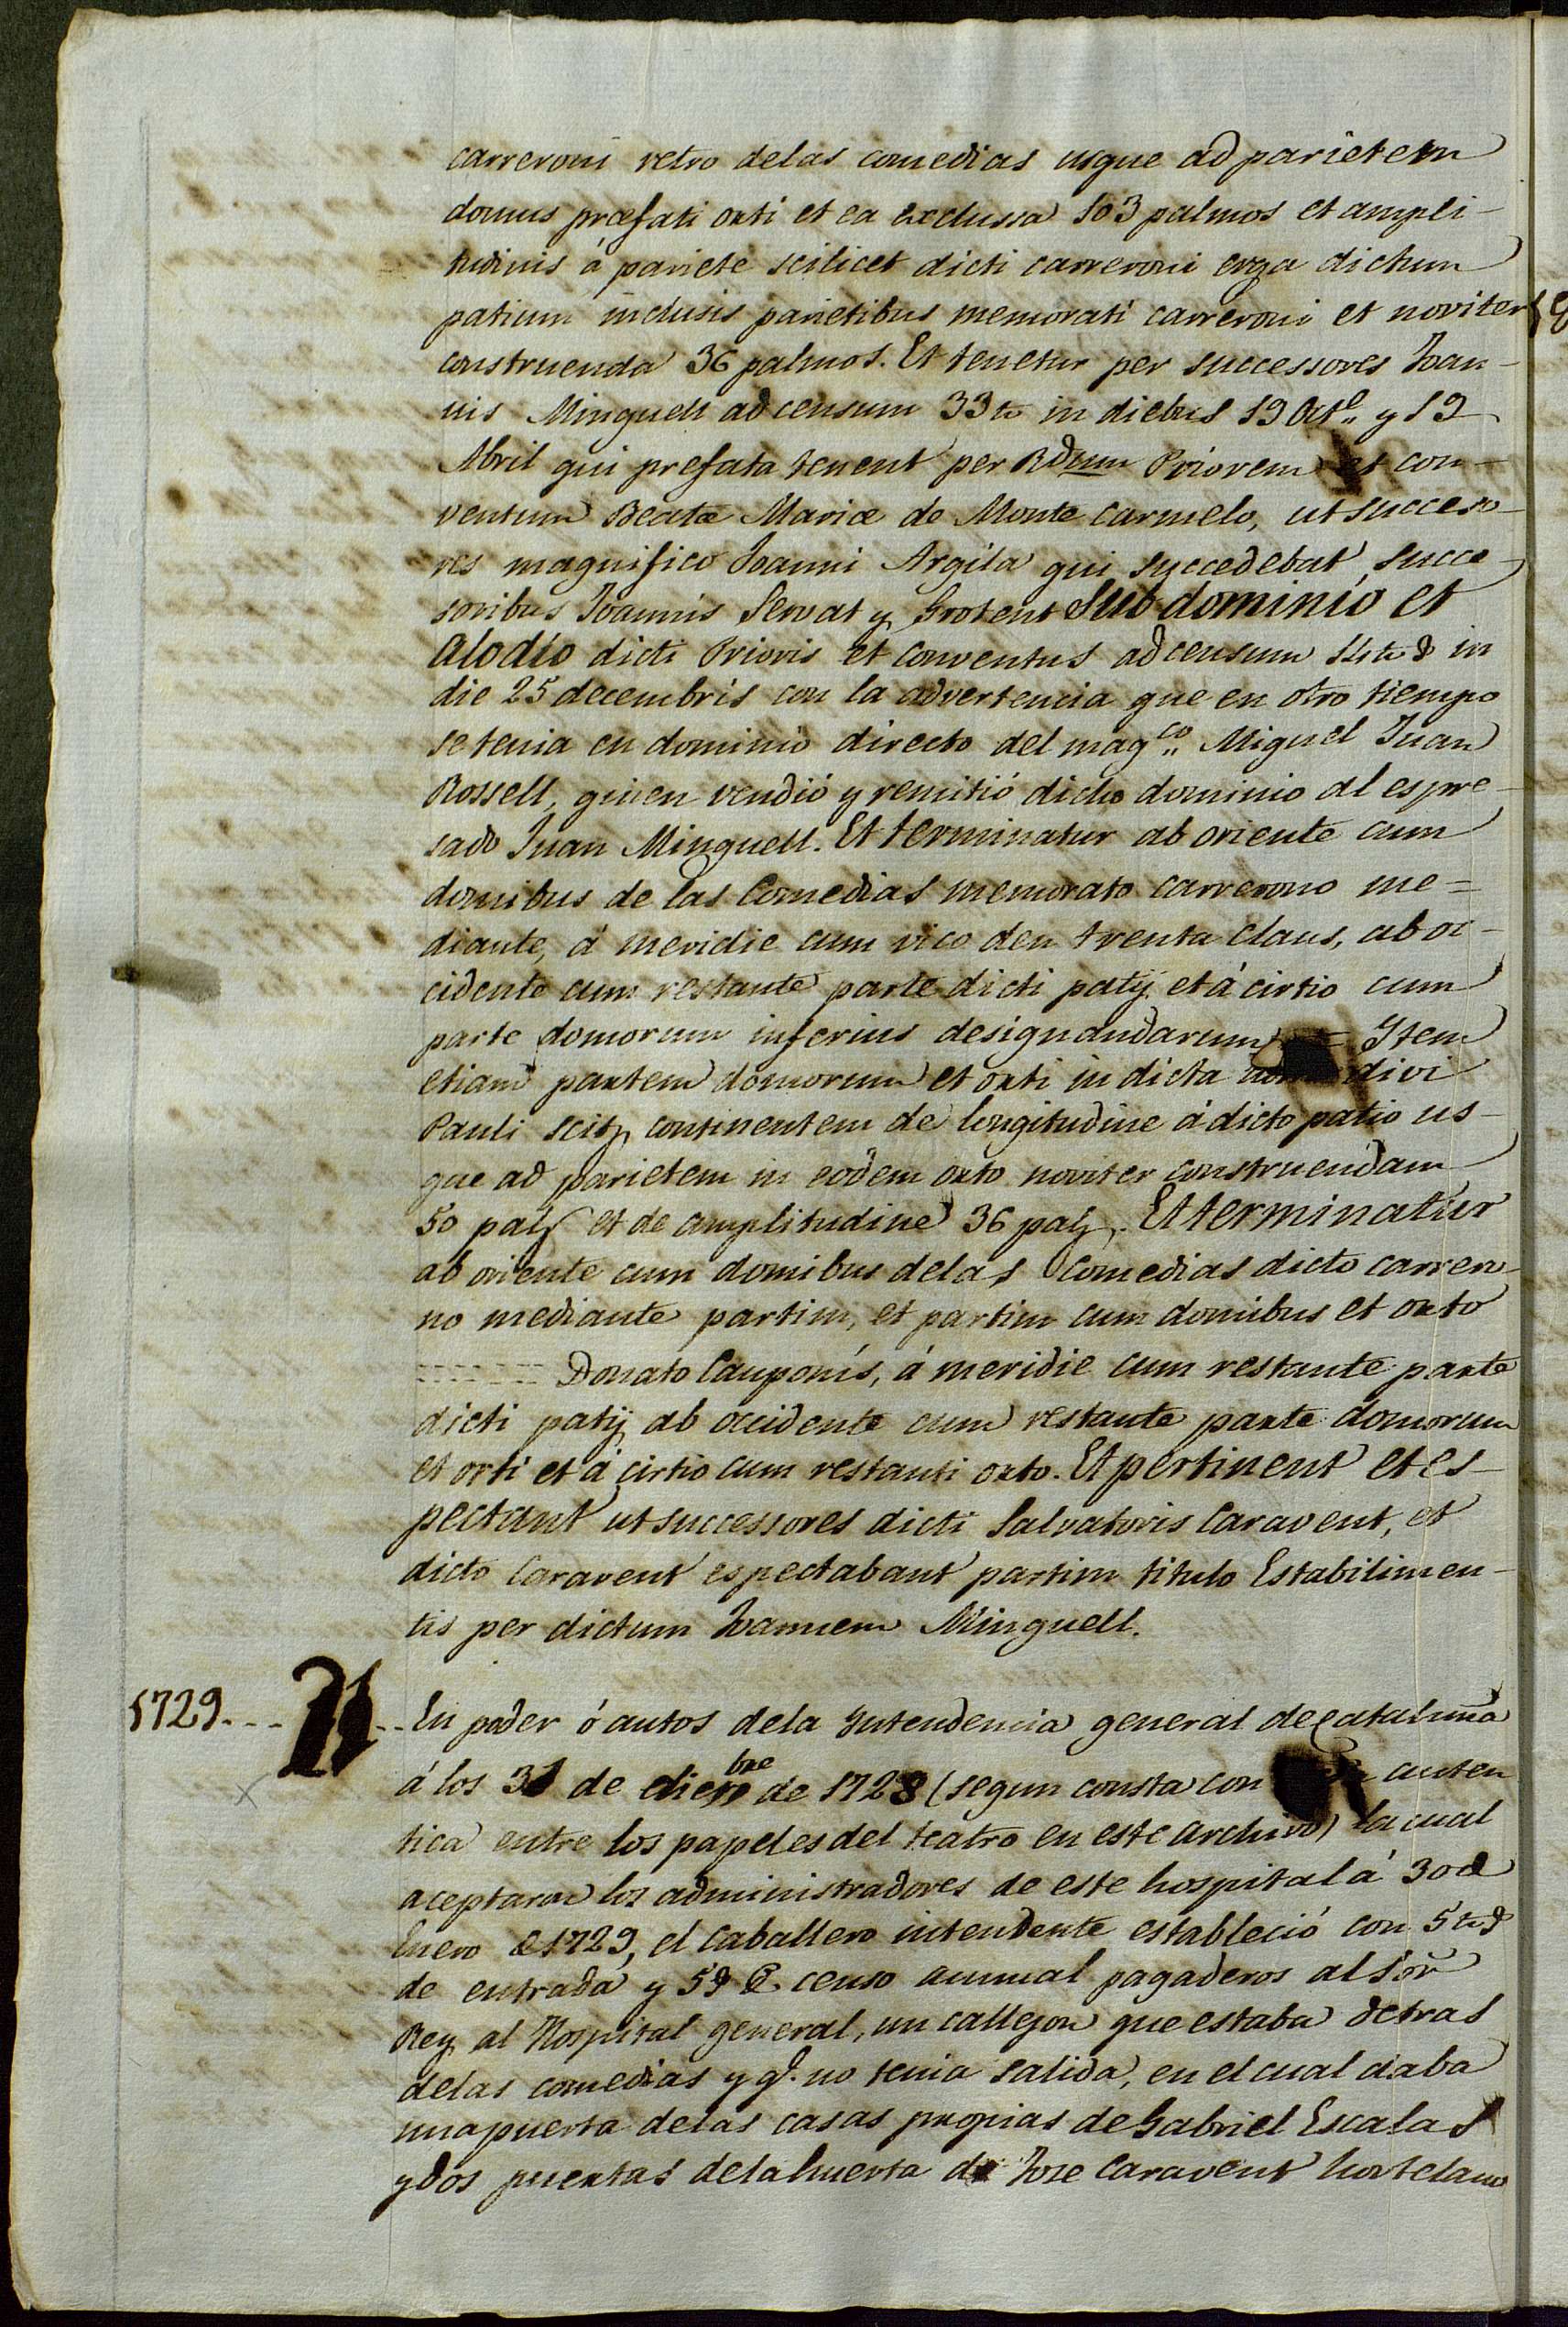 carreroni retro delas comedias usque ad parietem
domus præfati orti et ea exclussa 103 palmos et ampli-
tudinis á pariete scilicet dicti carreroni erga dictum
patium inclusis parietibus memorati carreroni et noviter
construenda 36 palmos. Et tenetur per successores Ioan-
nis Minguell ad censum 33 in diebus 19 Oct.e y 19
Abril qui prefata tenent per Rdum Priorem et con-
ventum Beatæ Mariæ de Monte carmelo, ut succeso-
res magnifico Joanni Argila qui succedebat succe-
soribus Joannis Servat y Grotent Sub dominio et
alodio dicti Prioris et conventus ad censum in
die 25 decembris con la advertencia que en otro tiempo
se tenia en dominio directo del mag.co Miguel Juan
Rossell, quien vendió y remitió dicho dominio al espre-
sado Juan Minguell. Et terminatur ab oriente cum
domibus de las Comedias memorato carrerono me=
diante, á meridie cum vico den trenta claus, ab oc-
cidente cum restante parte dicti patij et á cirtio cum
parte domorum inferius designandarum Item
etiam partem domorum et orti in dicta divi
Pauli scitz continentem de longitudine á dicto patio us-
que ad parietem in eodem orto noviter construendam
50 palz et de amplitudine 36 palz. Et terminatur
ab oriente cum domibus delas Comedias dicto carrero-
no mediante partim, et partim cum domibus et orto
------- Donato Cauponis, á meridie cum restante parte
dicti patij ab occidente cum restante parte domorum
et orti et á cirtio cum restanti orto. Et pertinent et es-
pectant ut successores dicti Salvatoris Caravent, et
dicto Caravent espectabant partim titulo Estabilimen-
tis per dictum Ioannem Minguell.
1729... 21.. En poder ó autos dela Intendencia general de Cataluña
á los 31 de diciebre de 1728 (segun consta con auten
tica entre los papeles del teatro en este archivo) la cual
aceptaron los administradores de este hospital á 30 de
Enero de 1729, el caballero intendente estableció con 5
de entrada y 5 de censo annual pagaderos al Sor
Rey al Hospital general, un callejon que estaba detras
delas comedias y q.e no tenia salida, en el cual daba
una puerta delas casas propias de Gabriel Escalas
y dos puertas dela huerta de Jose Caravent hortelano